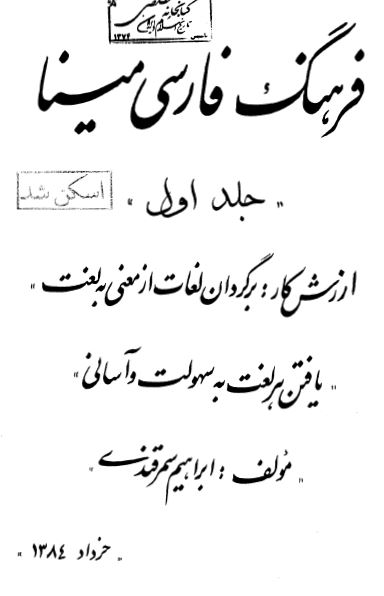 کتابخانه تخصصی
تاریخ اسلام و ایران
تاسیس ۱۳۷۴
فرهنگ فارسی مینا
« جلد اول »
اسکن شد
ارزش کار : برگردان لغات از معنی به لغت »
« یافتن هر لغت به سهولت و آسانی »
« مؤلف : ابراهیم سمرقندی »
« خرداد ۱۳۸۴ »